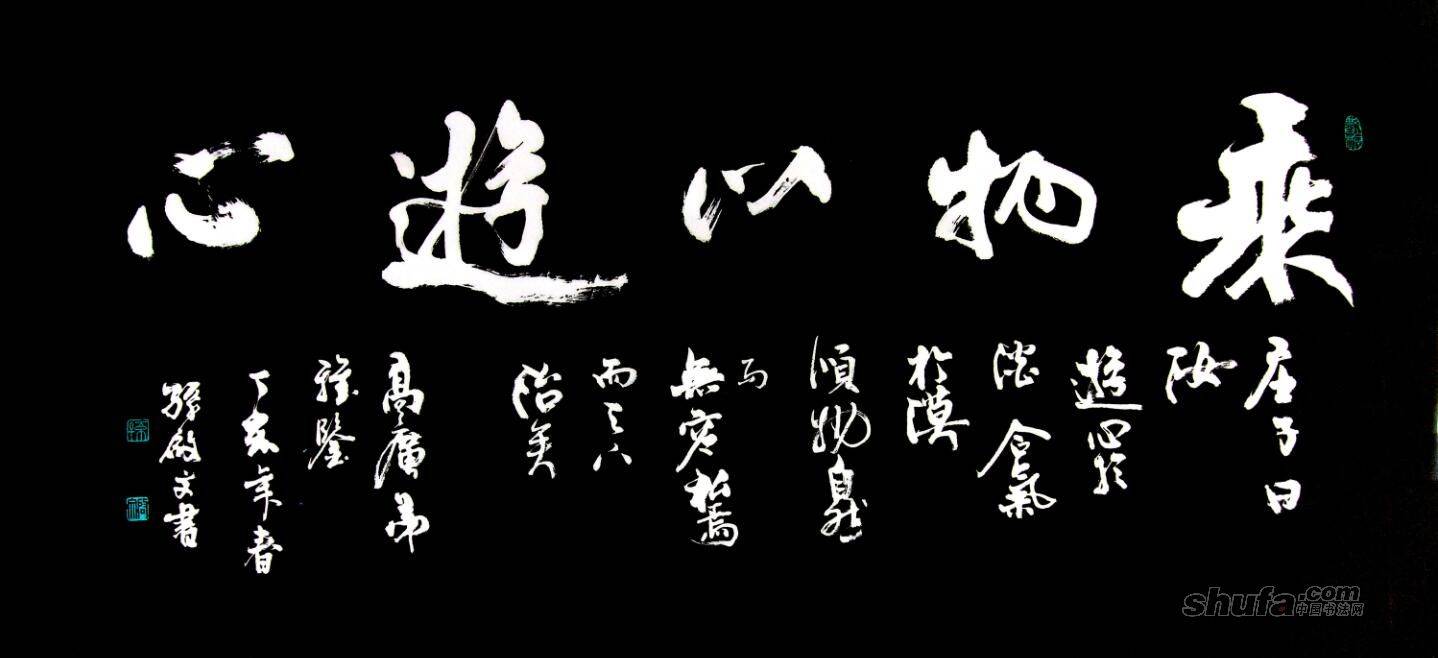 乘物以遊心
庄子曰
汝
遊心於
澹合氣
於漠
順物自然
而
無容私焉
而天下
治矣
高廣弟
雅鑒
丁亥年春
孫啟文書
shufa.com
中国书法网